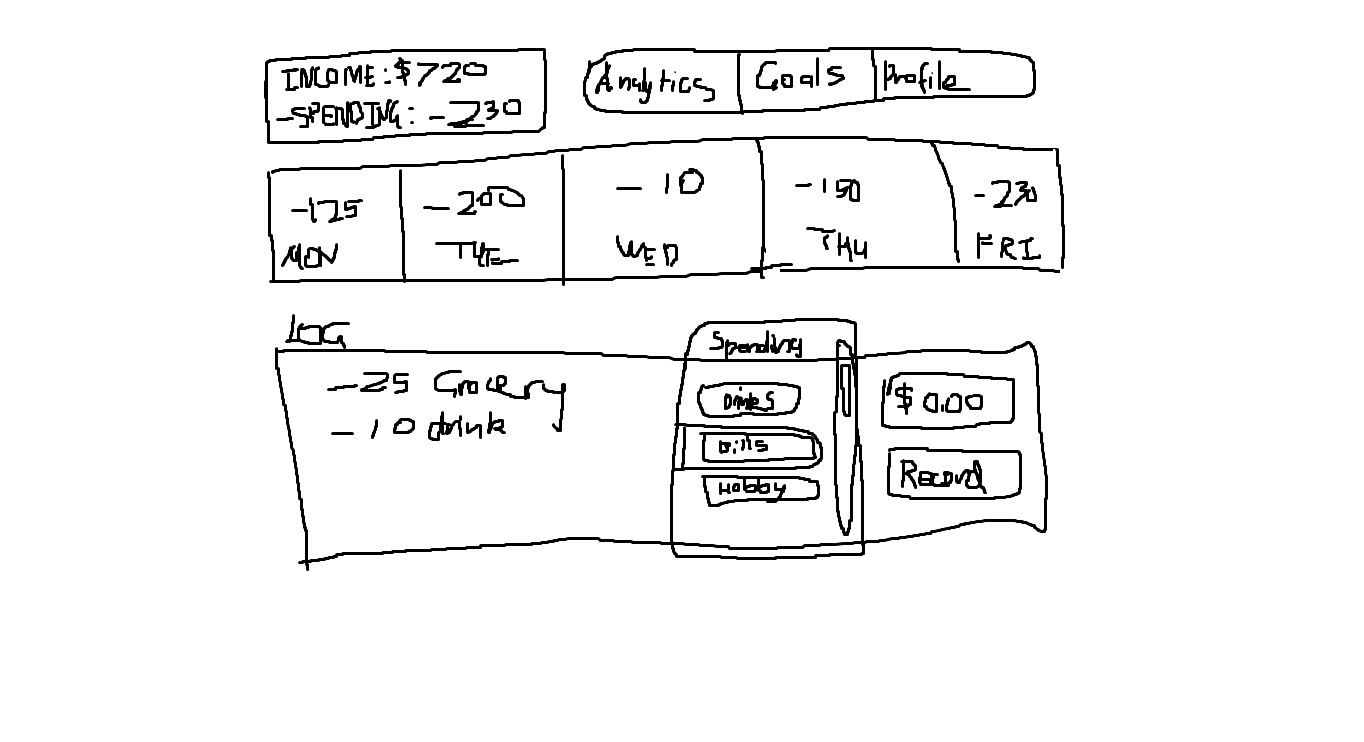 INCOME: $720
-SPENDING: -230
Analytics Goals Profile
-125 -200 -10 -150 -230
MON TUE WED THU FRI
LOG
Spending
-25 Grocery
-10 drink
Drinks
Bills
Hobby
$ 0.00
Record